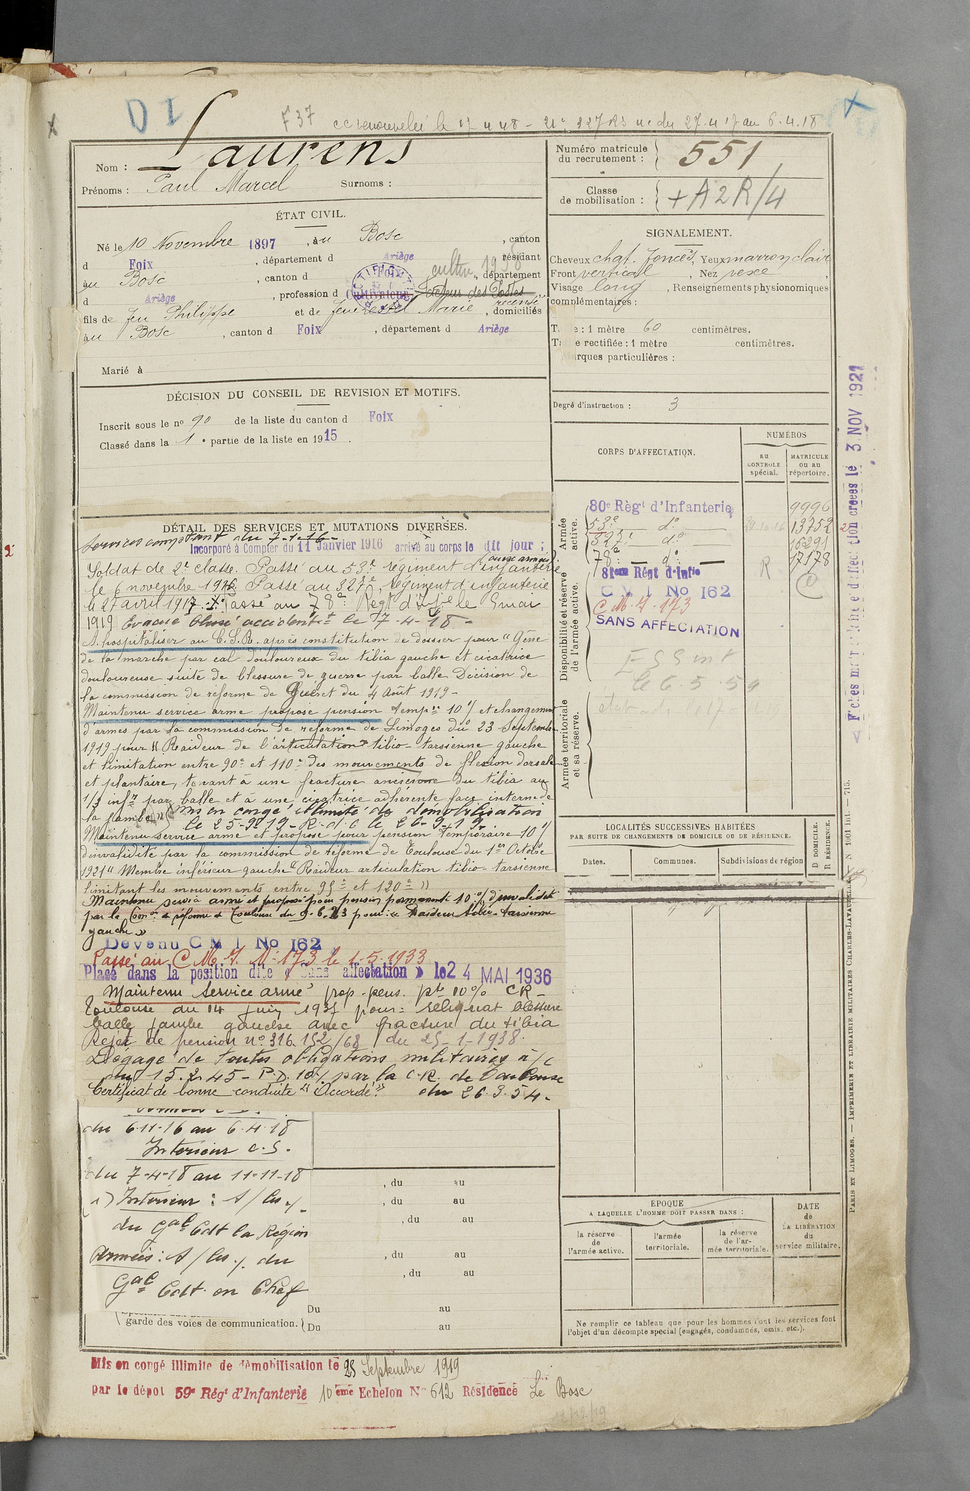 D I
F 37
Laurens
Nom :
Prénoms : Paul Marcel Surnoms :
Numéro matricule
du recrutement : 551
Classe
de mobilisation : + A 2 R/4
ÉTAT CIVIL.
Né le 10 Novembre 1897, au Bosc, canton
d Foix, département d Ariège, résidant
au Bosc, canton d Foix, département
d Ariège, profession d Cultivateur Facteur des Postes
fils de feu Philippe et de feue Marie, domiciliés
au Bosc, canton d Foix, département d Ariège
Marié à
SIGNALEMENT.
Cheveux chat. foncés, Yeux marron clair
Front vertical, Nez vexe
Visage long, Renseignements physionomiques
complémentaires :
Taille : 1 mètre 60 centimètres.
Taille rectifiée : 1 mètre centimètres.
Marques particulières :
Degré d'instruction : 3
DÉCISION DU CONSEIL DE REVISION ET MOTIFS.
Inscrit sous le n° 90 de la liste du canton d Foix
Classé dans la 1e partie de la liste en 1915.
CORPS D'AFFECTATION.
NUMÉROS
AU
CONTROLE
spécial.
MATRICULE
OU AU
répertoire.
Armée
active.
80e Régt d'Infanterie 9996
53e do 13759
327e do 16291
78e do 17178
Disponibilité et réserve
de l'armée active.
81eme Régt d'Infie R
C M I No 162
C.M.I. 173
SANS AFFECTATION
le 6.5.59
Armée territoriale
et sa réserve.
DÉTAIL DES SERVICES ET MUTATIONS DIVERSES.
Services comptant du 7-1-16-
Incorporé à Compter du 11 Janvier 1916 arrivé au corps le dit jour;
Soldat de 2e classe. Passé au 53e régiment d'infanterie
le 6 novembre 1916. Passé au 327e régiment d'infanterie
le 27 avril 1917. Passé au 78e Régt d'Infie le 8 mai
1919 Evacué blessé accidentt le 7-4-18-
A hospitaliser au C.S.R. après constitution de dossier pour "Gêne
de la marche par cal douloureux du tibia gauche et cicatrice
douloureuse suite de blessure de guerre par balle. Décision de
la commission de réforme de Guéret du 4 Août 1919-
Maintenu service armé proposé pension temp. 10% et changement
d'armes par la commission de réforme de Limoges du 23 Septembre
1919 pour "Raideur de l'articulation tibio-tarsienne gauche
et limitation entre 90° et 110° des mouvements de flexion dorsale
et plantaire, tenant à une fracture ancienne du tibia au
1/3 infr par balle et à une cicatrice adhérente face interne de
la jambe" Mis en congé illimité de démobilisation
le 25-9-19-R.d.C le 26-9-19.
Maintenu service armé et proposé pour pension temporaire 10%
d'invalidité par la commission de réforme de Toulouse du 1er Octobre
1921 "Membre inférieur gauche" Raideur articulation tibio-tarsienne
limitant les mouvements entre 95° et 120°"
Maintenu service armé et proposé pour pension permanente 10% d'invalidité
par la Comon de réforme de Toulouse du 9.6.23 pour: "Raideur tibio-tarsienne
gauche"
Devenu C M I No 162
Passé au C.M.I. N° 173 le 1.5.1933
Placé dans la position dite « Sans affectation » le 24 MAI 1936
Maintenu Service armé prop. pens. pte 10% CR
Toulouse du 14 Juin 1937 pour: reliquat blessure
balle jambe gauche avec fracture du tibia
Rejet de pension n° 316.152/68 du 25-1-1938.
Dégagé de toutes obligations militaires à/c
du 15.2.45 - P.D. 10% par la C.R. de Toulouse
Certificat de bonne conduite "Accordé" du 26.3.54-
du 6-11-16 au 6-4-18
Intérieur C.S.
du 7-4-18 au 11-11-18
Intérieur :
du Gal Cdt la Région
Armées : du
Gal Cdt en Chef
, du au
, du au
, du au
, du au
, du au
Du au
garde des voies de communication. Du au
LOCALITÉS SUCCESSIVES HABITÉES
PAR SUITE DE CHANGEMENTS DE DOMICILE OU DE RÉSIDENCE.
D DOMICILE.
R RÉSIDENCE.
Dates. Communes. Subdivisions de région
ÉPOQUE
A LAQUELLE L'HOMME DOIT PASSER DANS :
la réserve
de
l'armée active.
l'armée
territoriale.
la réserve
de l'ar-
mée territoriale.
DATE
de
LA LIBÉRATION
du
service militaire.
Ne remplir ce tableau que pour les hommes dont les services font
l'objet d'un décompte spécial (engagés, condamnés, omis, etc.).
Mis en congé illimité de démobilisation le 25 Septembre 1919
par le dépot 59e Régt d'Infanterie 10eme Echelon N° 612 Résidence Le Bosc
3 NOV 1921
PARIS ET LIMOGES. — IMPRIMERIE ET LIBRAIRIE MILITAIRES CHARLES-LAVAUZELLE